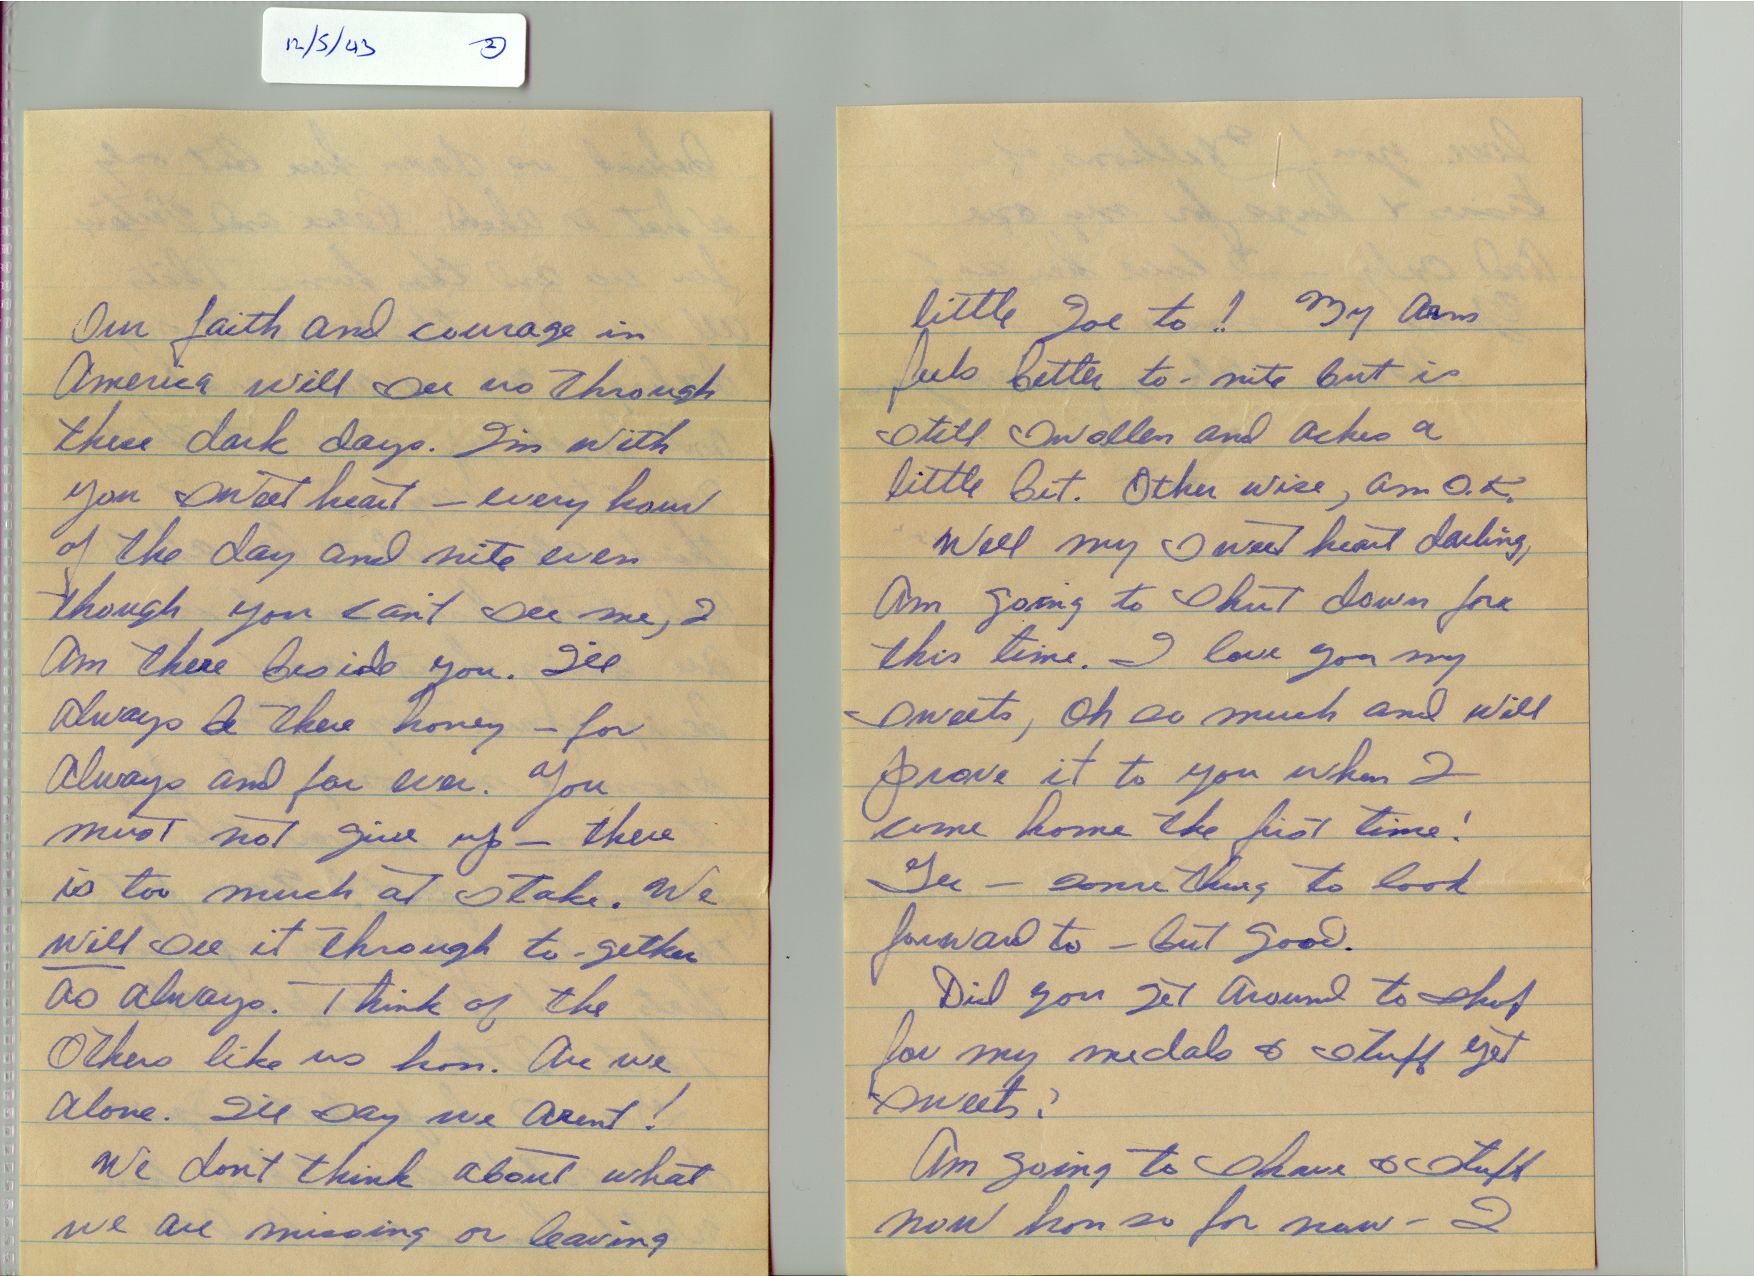 12/5/43 2
Our faith and courage in
America will see us through
these dark days. I'm with
you sweet heart – every hour
of the day and nite even
though you can't see me, I
Am there beside you. I'll
Always be there honey – for
Always and for ever. You
must not give up – there
is too much at stake. We
will see it through to-gether
As always. Think of the
Others like us hon. Are we
Alone. I'll say we arent!
We don't think about what
we are missing or leaving
little Joe to! My Arm
feels better to-nite but is
still swollen and aches a
little bit. Other wise, am O.K.
Well my sweet heart darling,
Am going to shut down for
this time. I love you my
sweets, Oh so much and will
prove it to you when I
come home the first time!
Gee – some thing to look
forward to – but good.
Did you get around to shop
for my medals & stuff yet
sweets?
Am going to shave & stuff
now hon so for now – I